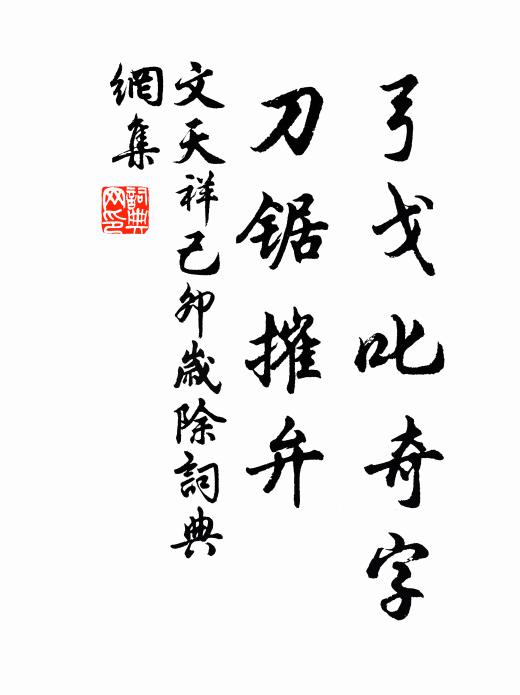 弓戈叱奇字
刀锯摧弁
文天祥己卯歲除詞典
網集
詞典
网印